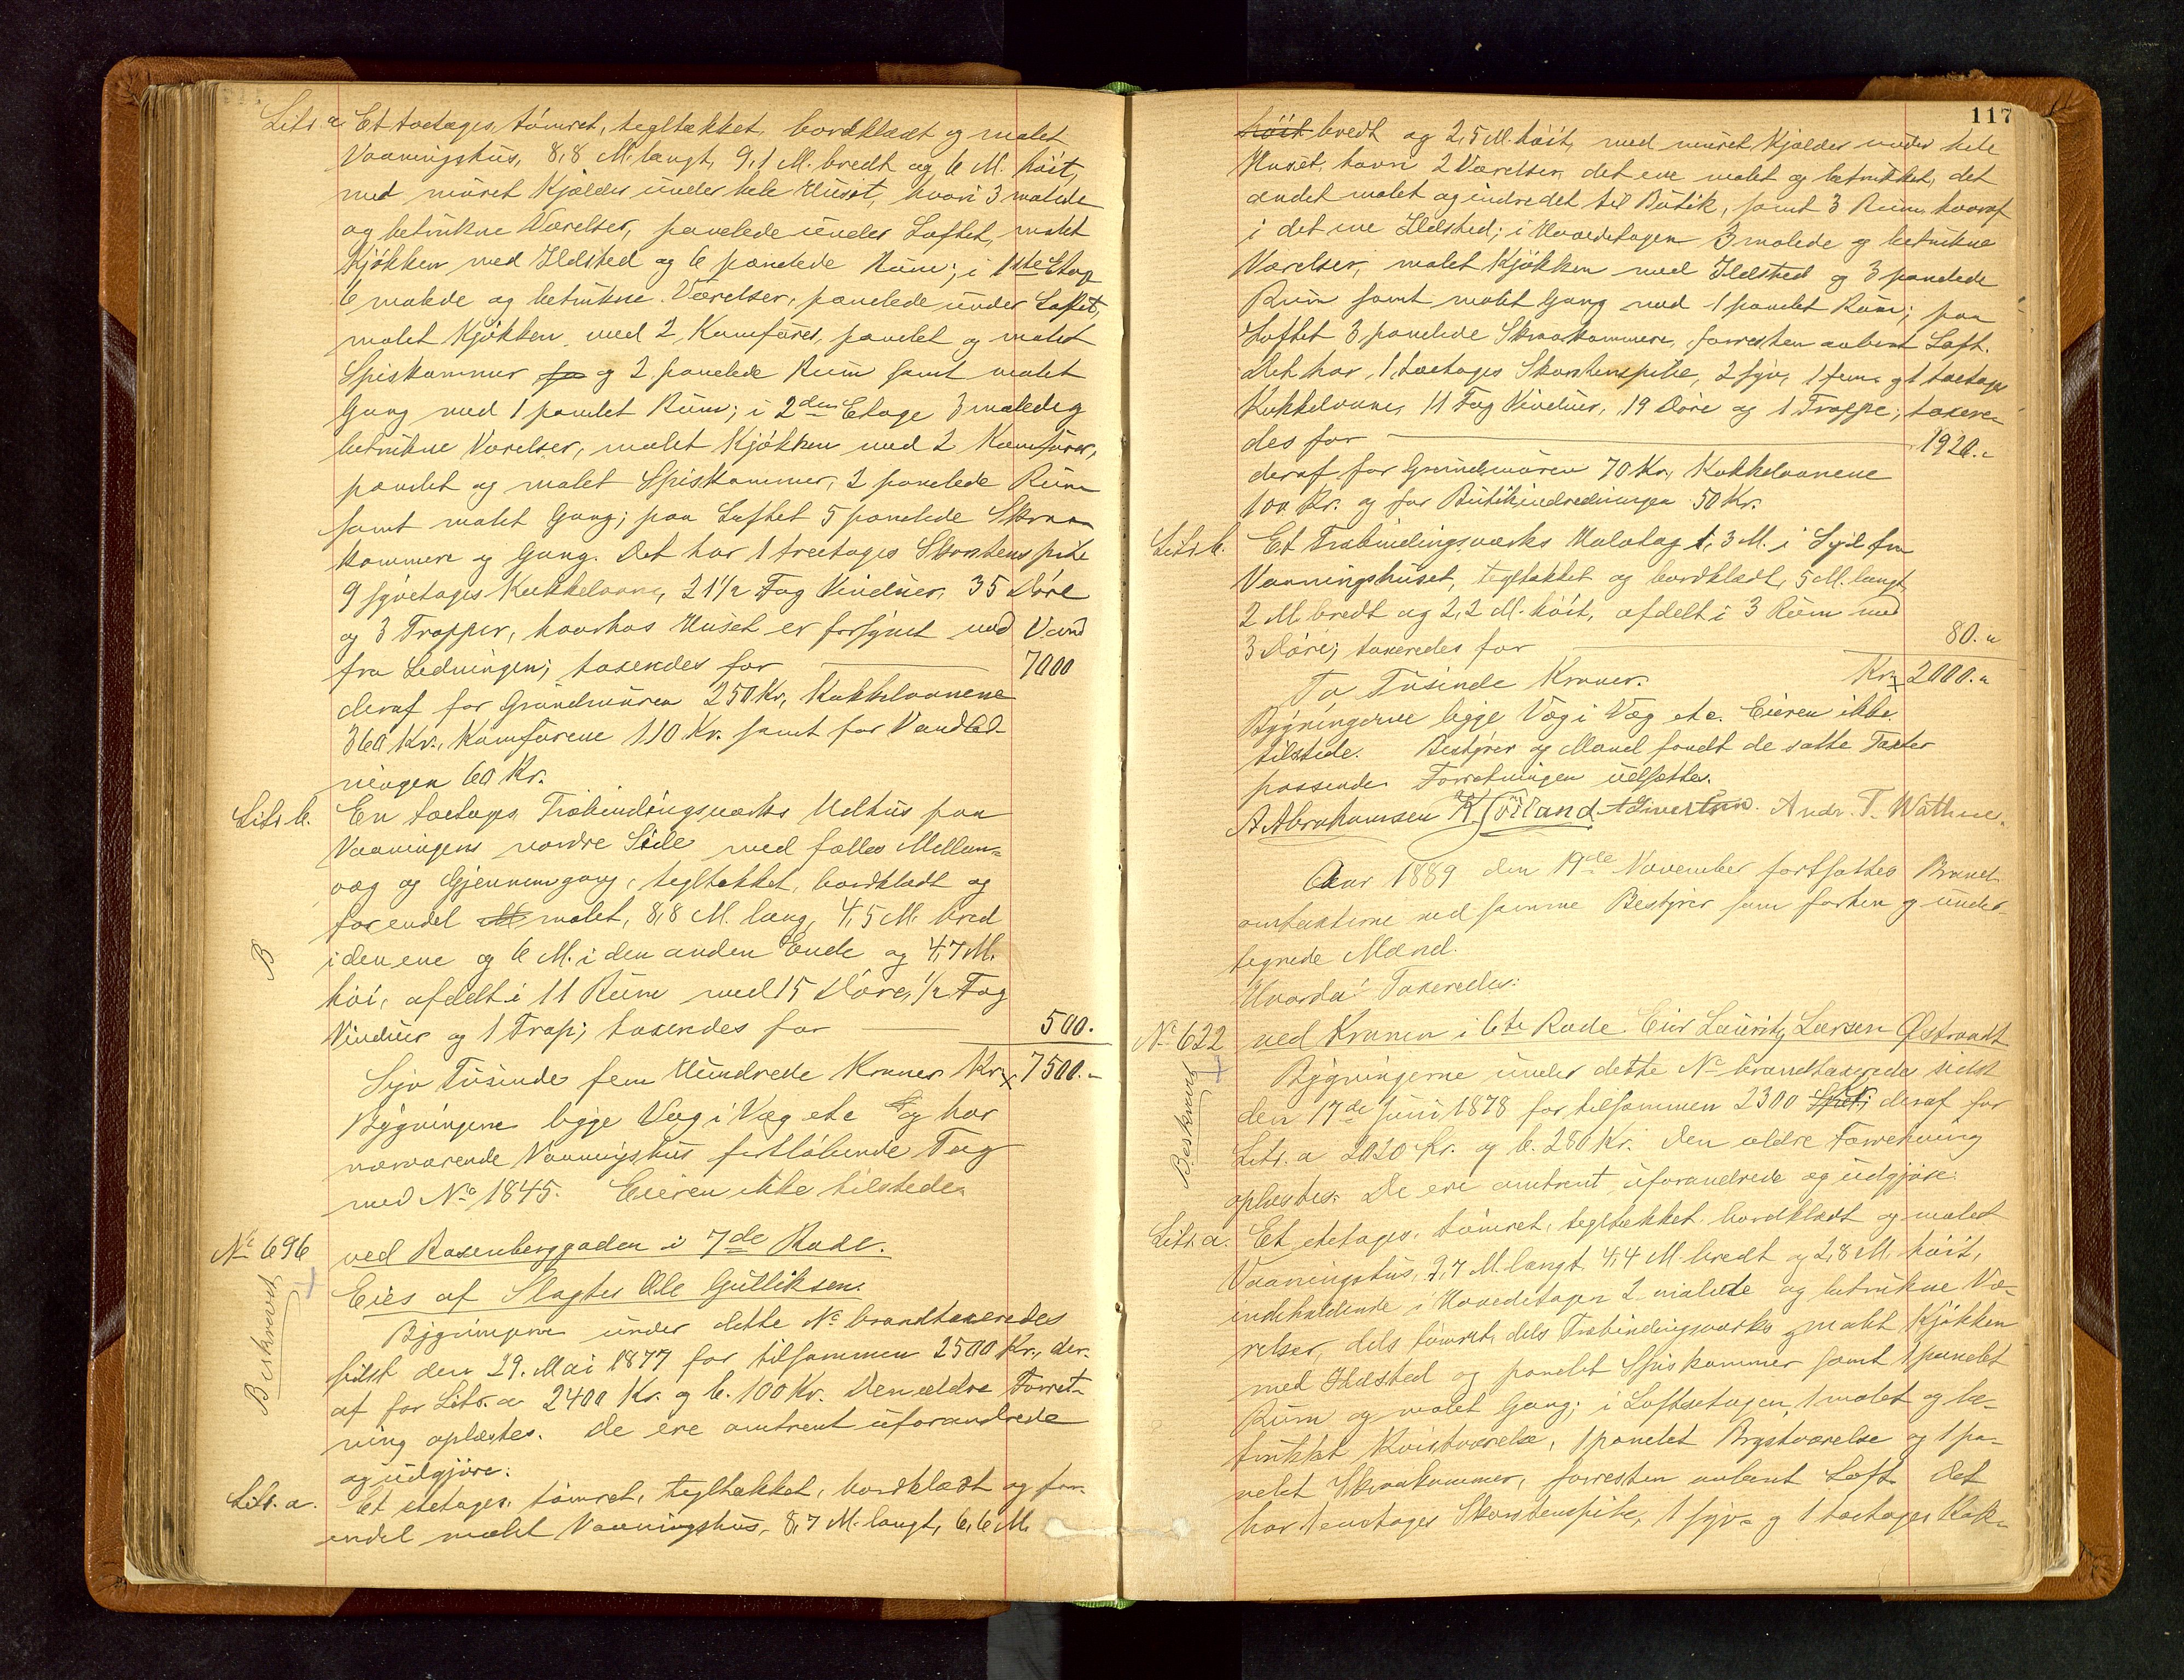 Litr. a. Et toetages, tømret, tegltækket, bordklædt og malet
Vaaningshus, 8,8 M. langt, 9,1 M. bredt og 6 M. høit,
med muret Kjælder under hele Huset, hvori 3 malede
og betrukne Værelser, panelede under Loftet, malet
Kjøkken med Ildsted og 6 panelede Rum; i 1ste Etage
6 malede og betrukne Værelser, panelede under Loftet,
malet Kjøkken med 2 Komfurer, panelet og malet
Spiskammer og 2 panelede Rum samt malet
Gang med 1 panelet Rum; i 2den Etage 3 malede og
betrukne Værelser, malet Kjøkken med 2 Komfurer,
panelet og malet Spiskammer, 2 panelede Rum
samt malet Gang; paa Loftet 5 panelede Skraa-
kammere og Gang. Det har 1 treetages Skorstenspibe
9 syvetages Kakkelovne, 21 1/2 Fag Vinduer, 35 Døre
og 3 Trapper, hvorhos Huset er forsynet med Vand
fra Ledningen; taxeredes for 7000
deraf for Grundmuren 250 Kr., Kakkelovnene
360 Kr., Komfurene 110 Kr. samt for Vandled-
ningen 60 Kr.
Litr. b. En toetages Træbindingsværks Udhus paa
Vaaningens nordre Side med fælles Mellem-
væg og Gjennemgang, tegltækket, bordklædt og
forendel malet, 8,8 M. lang, 4,5 M. bred
B
i den ene og 6 M. i den anden Ende og 4,7 M.
høi, afdelt i 11 Rum med 15 Døre, 1/2 Fag
Vinduer og 1 Trap; taxeredes for 500.
Syv Tusinde fem Hundrede Kroner Kr. 7500.-
Bygningerne ligge Væg i Væg etc og har
nærværende Vaaningshus fortløbende Tag
med No 1845. Eieren ikke tilstede.
No 696 ved Rosenberggaden i 7de Rode.
Beskrevet
Eies af Slagter Ole Gulliksen.
Bygningerne under dette No brandtaxeredes
sidst den 29. Mai 1877 for tilsammen 2500 Kr., der-
af for Litr. a 2400 Kr. og b. 100 Kr. Den ældre Forret-
ning oplæstes. De ere omtrent uforandrede
og udgjøre:
Litr. a. Et etetages, tømret, tegltækket, bordklædt og for-
endel malet Vaaningshus, 8,7 M. langt, 6,6 M.
117
høit bredt og 2,5 M. høit, med muret Kjælder under hele
Huset, hvori 2 Værelser, det ene malet og betrukket, det
andet malet og indredet til Butik, samt 3 Rum, hvoraf
i det ene Ildsted; i Hovedetagen 3 malede og betrukne
Værelser, malet Kjøkken med Ildsted og 3 panelede
Rum samt malet Gang med 1 panelet Rum; paa
Loftet 3 panelede Skraakammere, forresten aabent Loft.
Det har 1 toetages Skorstenspibe, 2 syv, 1 fem og 1 toetages
Kakkelovne, 11 Fag Vinduer, 19 Døre og 1 Trappe; taxere-
des for 1920.-
deraf for Grundmuren 70 Kr., Kakkelovnene
100 Kr. og for Butikindredningen 50 Kr.
Litr. b. Et Træbindingsværks Halvtag, 1,3 M. i Syd fra
Vaaningshuset, tegltækket og bordklædt, 5 M. langt,
2 M. bredt og 2,2 M. høit, afdelt i 3 Rum med
3 Døre; taxeredes for 80.-
To Tusinde Kroner. Kr. 2000.-
Bygningerne ligge Væg i Væg etc. Eieren ikke
tilstede. Bestyrer og Mænd fandt de satte Taxter
passende. Forretningen udsættes.
A. Abrahamsen K. Gilland A. Sivertsen. Andr. T. Wathne.
Aar 1889 den 19de November fortsattes Brand-
omtaxterne med samme Bestyrer som forhen og under-
tegnede Mænd.
Hvorda Taxeredes:
No 622 ved Kranen i 6te Rode. Eier Lauritz Larsen Østraadt
Beskrevet
Bygningerne under dette No brandtaxeredes sidst
den 17de Juni 1878 for tilsammen 2300 deraf for
Litr. a 2020 Kr. og b. 280 Kr. Den ældre Forretning
oplæstes. De ere omtrent uforandrede og udgjøre:
Litr. a. Et etetages, tømret, tegltækket, bordklædt og malet
Vaaningshus, 9,7 M. langt 4,4 M. bredt og 2,8 M. høit,
indeholdende i Hovedetagen 2 malede og betrukne Væ-
relser, dels tømret, dels Træbindingsværks, malet Kjøkken
med Ildsted og panelet Spiskammer samt 1 panelet
Rum og malet Gang; i Loftsetagen 1 malet og be-
trukket Kvistværelse, 1 panelet Brystværelse og 1 pa-
nelet Skraakammer, forresten aabent Loft. Det
har 1 enetages Skorstenspibe, 1 syv- og 1 toetages Kak-